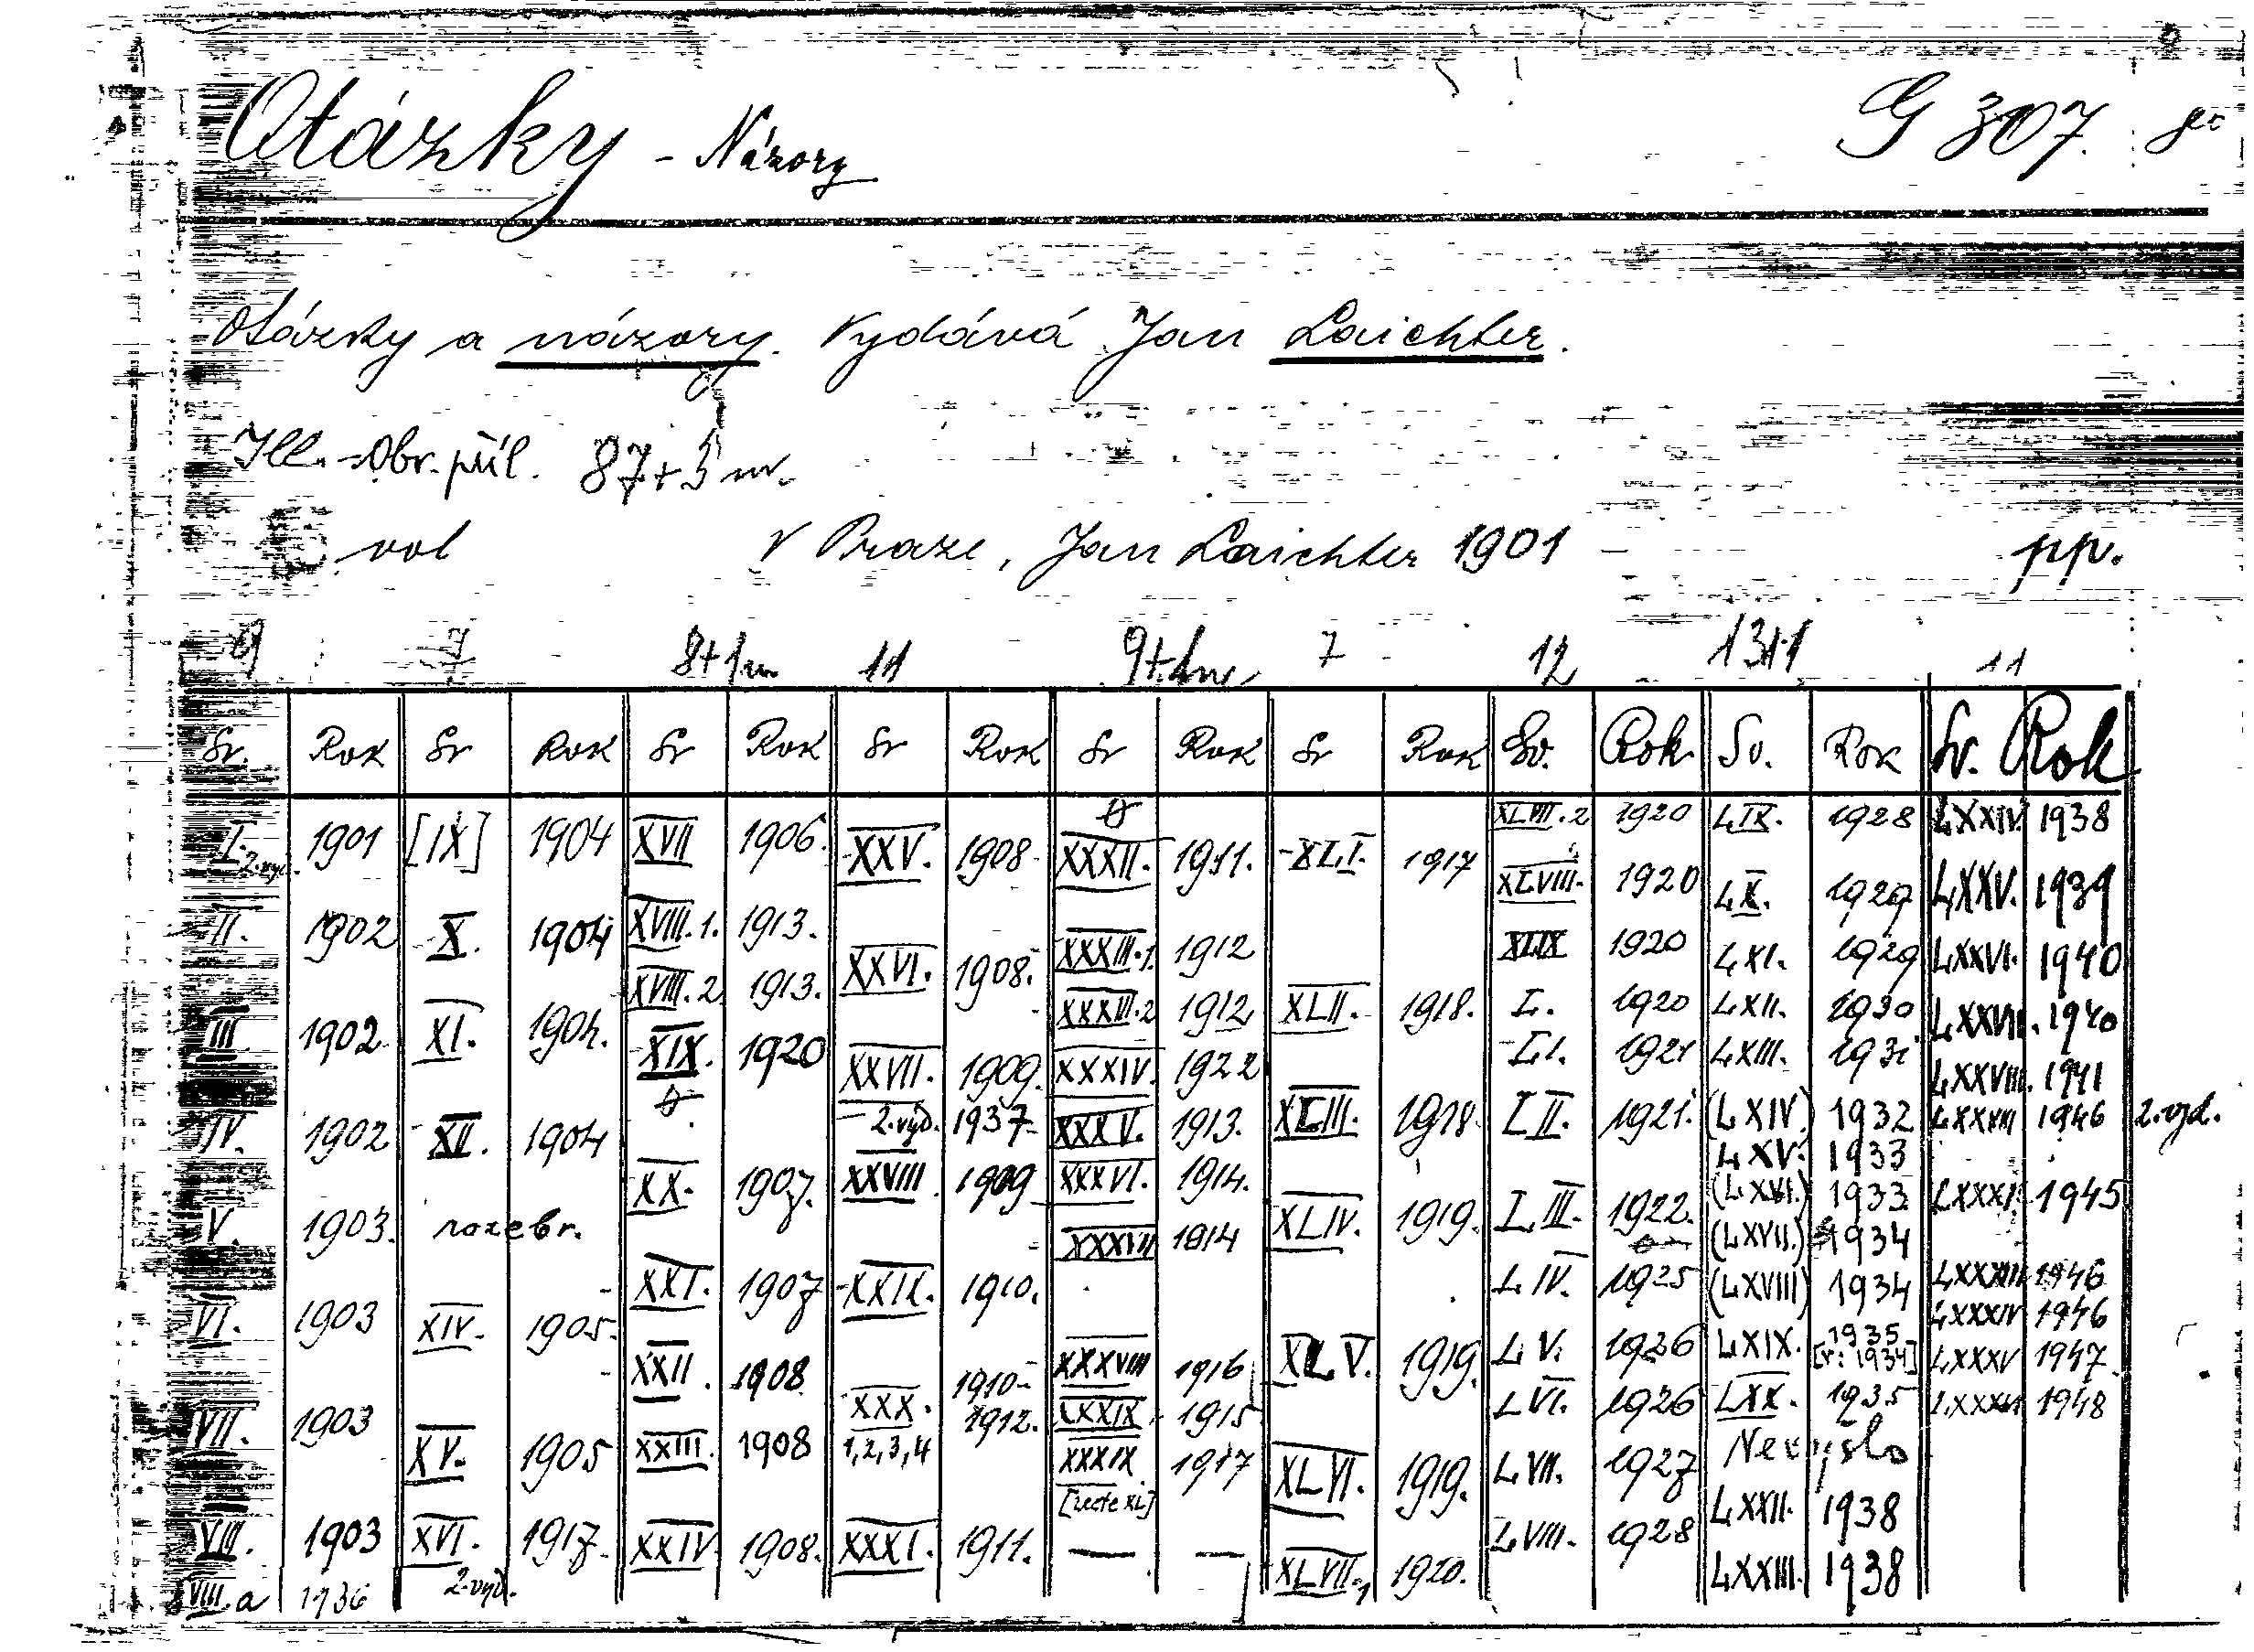 Otázky - Názory G 307. 8º
Otázky a názory. Vydává Jan Laichter.
Ill. - Obr. příl. 87+5 nv.
vol V Praze, Jan Laichter 1901 — pp.
9 7 8+1nv 11 9+1nv. 7 12 13+1 11
Sv. Rok Sv Rok Sv Rok Sv Rok Sv Rok Sv Rok Sv. Rok Sv. Rok Sv. Rok
I. 2.vyd. 1901
II. 1902
III 1902
IV. 1902
V. 1903.
VI. 1903
VII. 1903
VIII. 1903
VIII.a 1936
[IX] 1904
X. 1904
XI. 1904.
XII. 1904
rozebr.
XIV. 1905.
XV. 1905
XVI. 1917.
2.vyd.
XVII 1906.
XVIII.1. 1913.
XVIII.2 1913.
XIX. 1920
XX. 1907.
XXI. 1907
XXII. 1908
XXIII. 1908
XXIV. 1908.
XXV. 1908
XXVI. 1908.
XXVII. 1909.
2.vyd. 1937
XXVIII. 1909
XXIX. 1910.
XXX. 1910-
1,2,3,4 1912.
XXXI. 1911.
XXXII. 1911.
XXXIII.1. 1912
XXXIII.2 1912
XXXIV. 1922
XXXV. 1913.
XXXVI. 1914.
XXXVII 1914
XXXVIII 1916
LXXIX. 1915
XXXIX 1917
[recte XL]
— —
XLI. 1917
XLII. 1918.
XLIII. 1918
XLIV. 1919.
XLV. 1919.
XLVI. 1919.
XLVII.1 1920.
XLVII.2 1920
XLVIII. 1920
XLIX 1920
L. 1920
LI. 1921
LII. 1921.
LIII. 1922.
LIV. 1925
LV. 1926
LVI. 1926
LVII. 1927
LVIII. 1928
LIX. 1928
LX. 1929
LXI. 1929
LXII. 1930
LXIII. 1931
(LXIV) 1932
LXV. 1933
(LXVI.) 1933
(LXVII.) 1934
(LXVIII) 1934
LXIX. 1935
[v: 1934]
LXX. 1935
Nevyšlo
LXXII. 1938
LXXIII. 1938
LXXIV. 1938
LXXV. 1939
LXXVI. 1940
LXXVII. 1940
LXXVIII. 1941
LXXVIII 1946 2.vyd.
LXXXI. 1945
LXXXIII 1946
LXXXIV 1946
LXXXV 1947
LXXXVI 1948